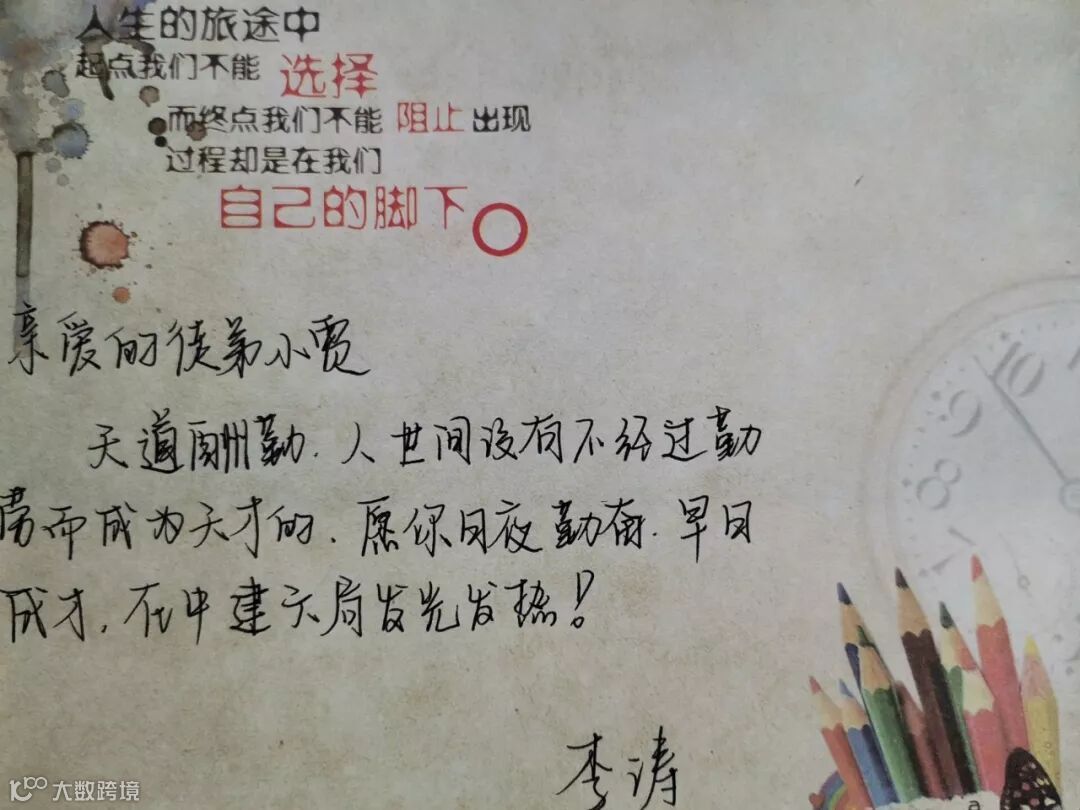 人生的旅途中
起点我们不能 选择
而终点我们不能 阻止 出现
过程却是在我们
自己的脚下
亲爱的徒弟小贾
天道酬勤.人世间没有不经过勤
劳而成为天才的.愿你日夜勤奋.早日
成才,在中建六局发光发热!
李涛
10
9
8
7
a
大数跨境